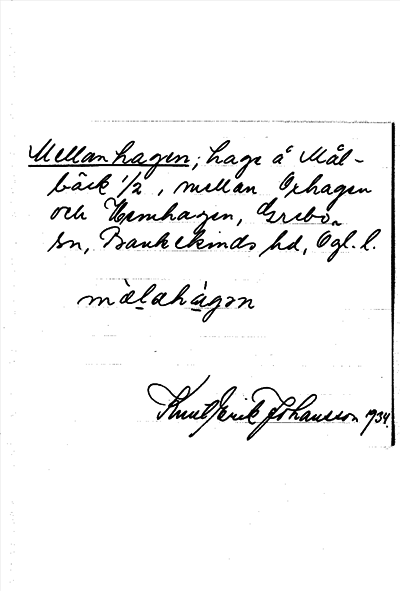 Mellanhagen; hage å Mål-
bäck 1/2, mellan Oxhagen
och Hemhagen, Grebo
sn, Bankekinds hd, Ögl. l.
màlahàgən
Knut Erik Johansson 1934.